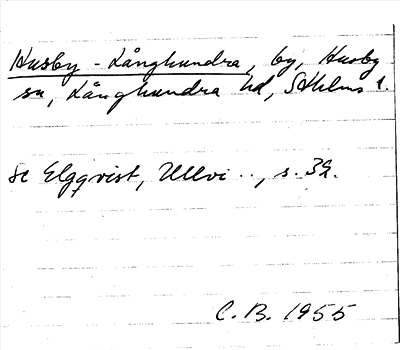 Husby-Långhundra, by, Husby
sn, Långhundra hd, Sthlms l.
se Elgqvist, Ullvi .., s. 39.
C. B. 1955